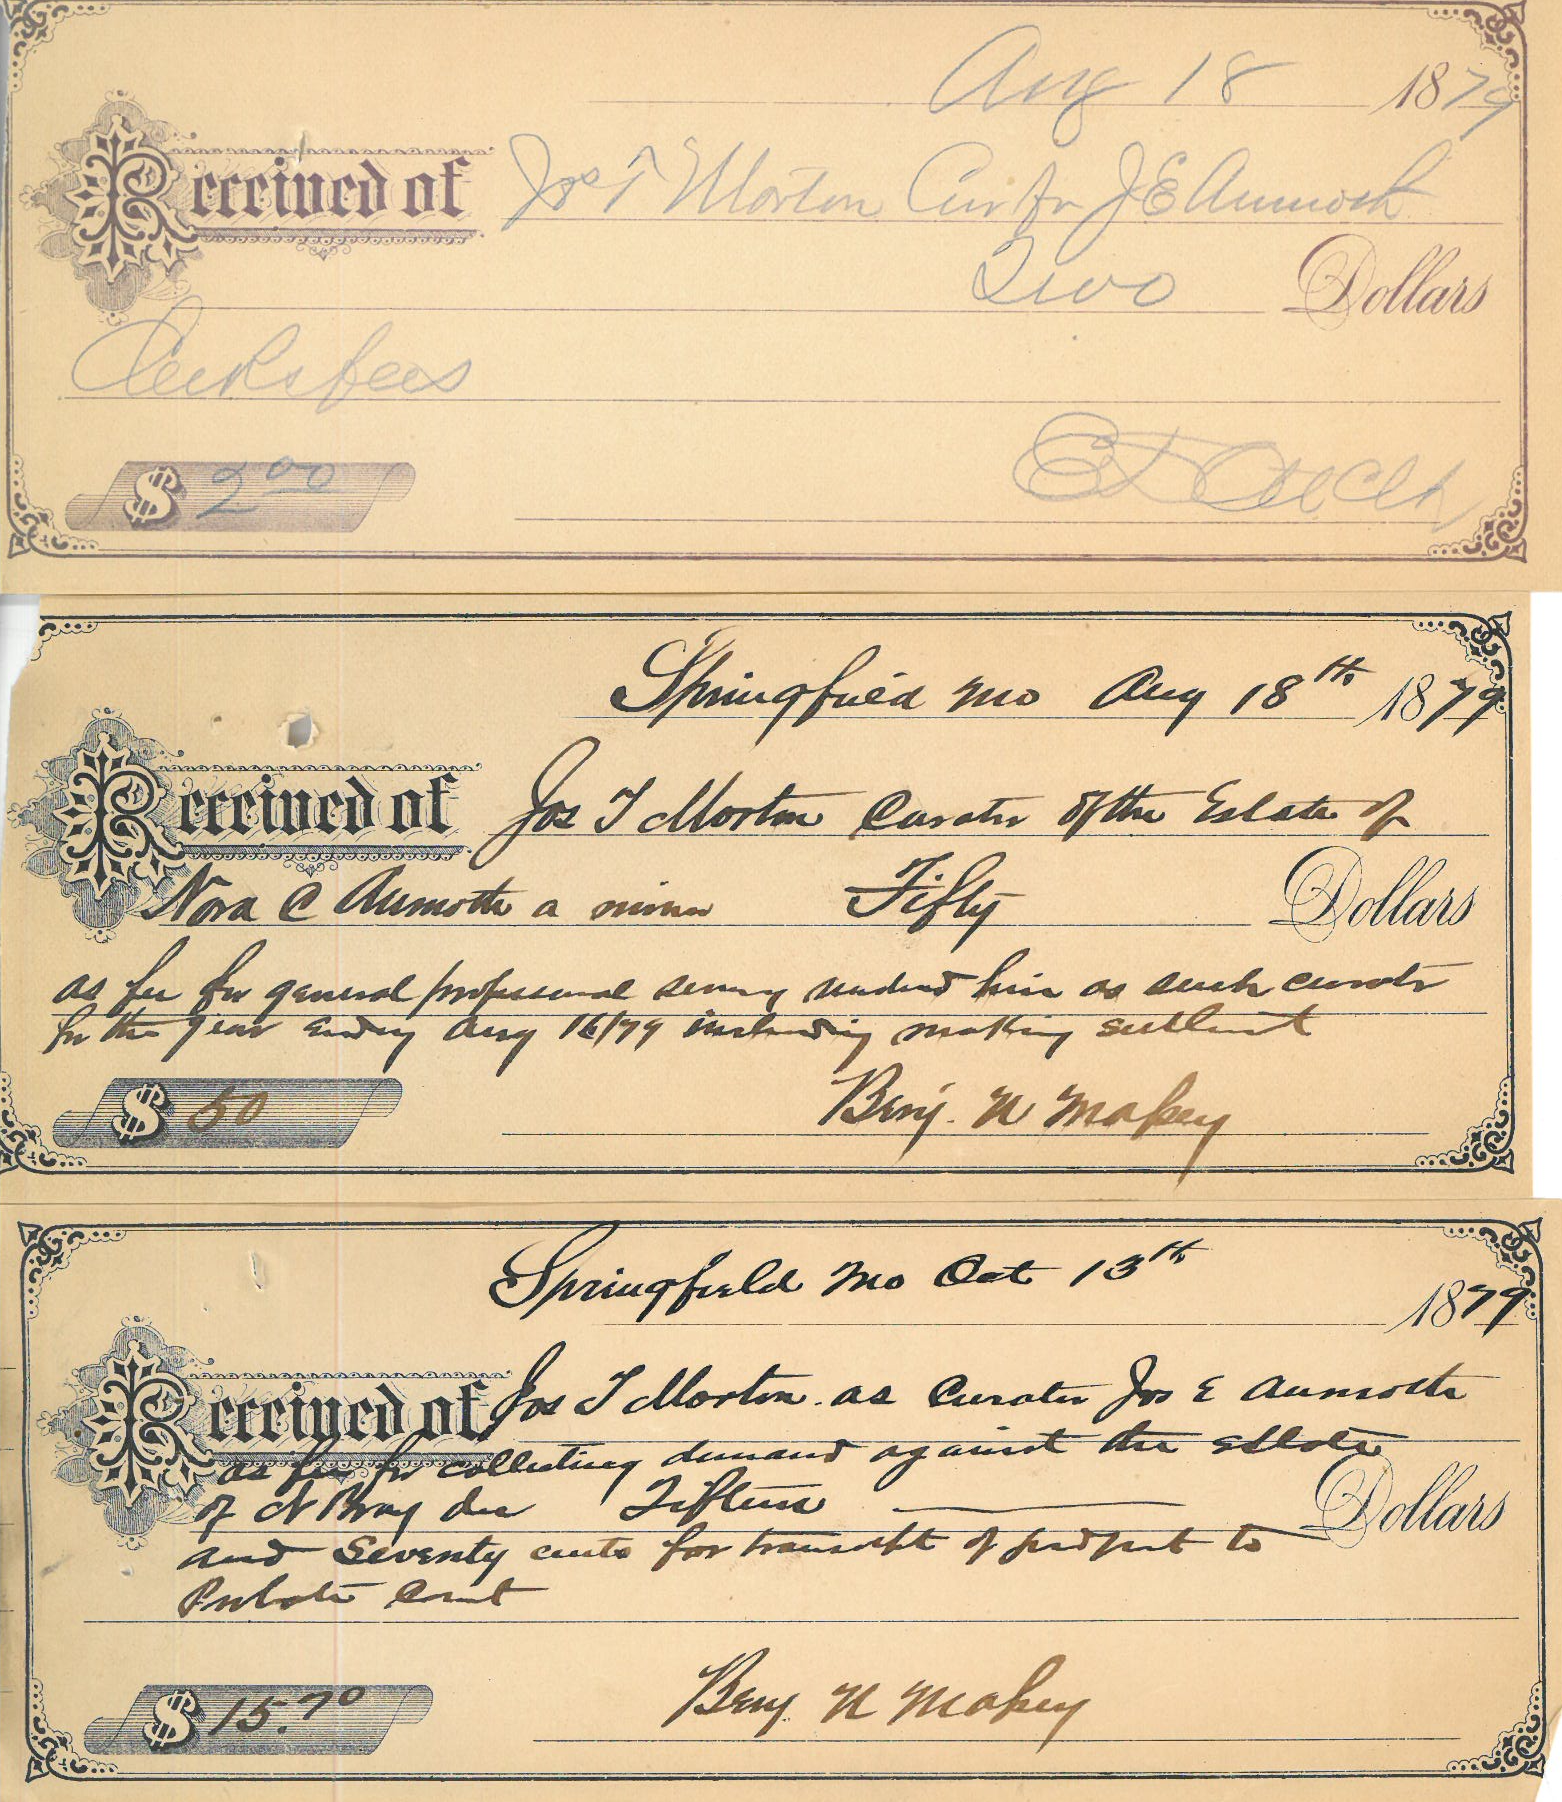 Aug 18 1879
Received of Jos T Morton Cur for J E Aumoth
Two Dollars
Clerks fees
$ 2 00
Springfield Mo Aug 18th 1879
Received of Jos T Morton Curator of the Estate of
Nora C Aumoth a minor Fifty Dollars
as fee for general professional services rendered him as such curator
for the year ending Aug 16/79 including making settlement
$ 50
Benj. N Mopey
Springfield Mo Oct 13th
1879
Received of Jos T Morton. as Curator Jos E Aumoth
as fee for collecting demand against the estate
of N Bray dec Fifteen Dollars
and Seventy cents for transcript of judgmt to
Probate Court
$ 15.70
Benj N Mopey